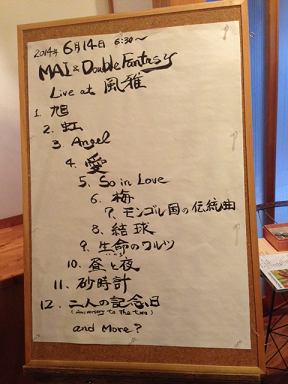 2014年 6月14日 6:30~
MAI & Double Fantasy
Live at 風雅
1. 旭
2. 虹
3. Angel
4. 愛
5. So in Love
6. 梅
7. モンゴル国の伝統曲
8. 結球
9. 生命のワルツ
10. 昼と夜
11. 砂時計
12. 二人の記念日
and More?